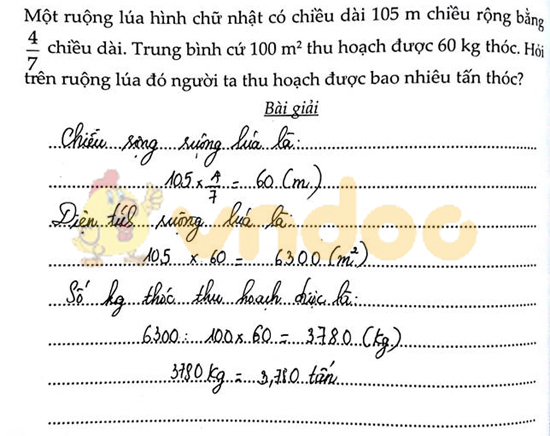 Một ruộng lúa hình chữ nhật có chiều dài 105 m chiều rộng bằng
4/7 chiều dài. Trung bình cứ 100 m² thu hoạch được 60 kg thóc. Hỏi
trên ruộng lúa đó người ta thu hoạch được bao nhiêu tấn thóc?
Bài giải
Chiều rộng ruộng lúa là:
105 × 4/7 = 60 (m)
Diện tích ruộng lúa là:
105 × 60 = 6300 (m²)
Số kg thóc thu hoạch được là:
6300 : 100 × 60 = 3780 (kg)
3780 kg = 3,780 tấn
vndoc